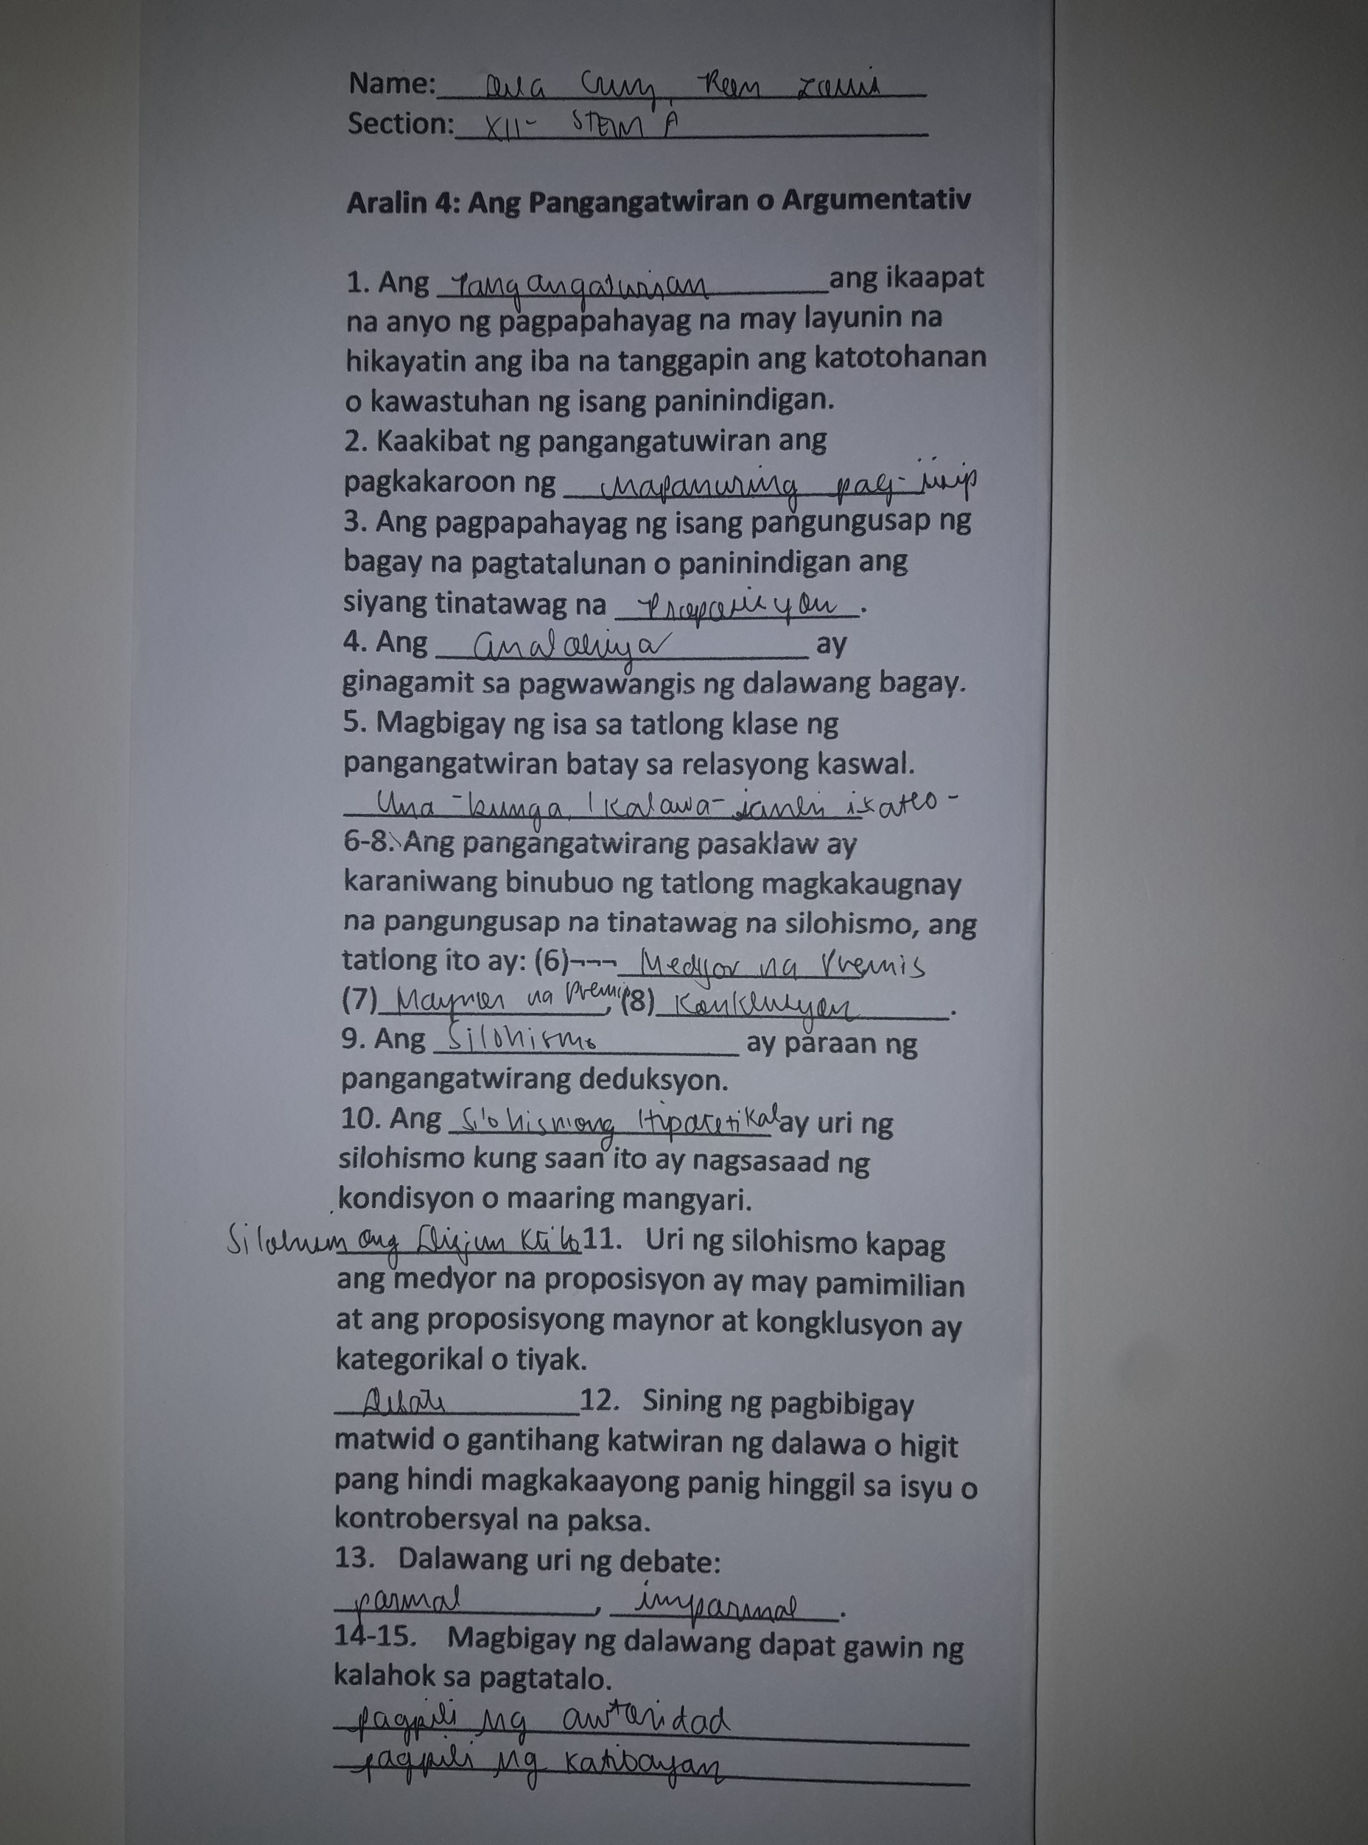 Name: Dela Cruz, Reen
Section: XII- STEM A
Aralin 4: Ang Pangangatwiran o Argumentativ
1. Ang Pangangatwiran ang ikaapat
na anyo ng pagpapahayag na may layunin na
hikayatin ang iba na tanggapin ang katotohanan
o kawastuhan ng isang paninindigan.
2. Kaakibat ng pangangatuwiran ang
pagkakaroon ng mapanuring pag-iisip
3. Ang pagpapahayag ng isang pangungusap ng
bagay na pagtatalunan o paninindigan ang
siyang tinatawag na Proposisyon.
4. Ang analohiya ay
ginagamit sa pagwawangis ng dalawang bagay.
5. Magbigay ng isa sa tatlong klase ng
pangangatwiran batay sa relasyong kaswal.
Una -bunga, Ikalawa- sanhi ikatlo-
6-8. Ang pangangatwirang pasaklaw ay
karaniwang binubuo ng tatlong magkakaugnay
na pangungusap na tinatawag na silohismo, ang
tatlong ito ay: (6)¬¬¬ Medyor na Premis
(7) Maynor na Premis, (8) Konklusyon.
9. Ang Silohismo ay paraan ng
pangangatwirang deduksyon.
10. Ang Silohismong Hipotetikal ay uri ng
silohismo kung saan ito ay nagsasaad ng
kondisyon o maaring mangyari.
Silohismong 11. Uri ng silohismo kapag
ang medyor na proposisyon ay may pamimilian
at ang proposisyong maynor at kongklusyon ay
kategorikal o tiyak.
Debate 12. Sining ng pagbibigay
matwid o gantihang katwiran ng dalawa o higit
pang hindi magkakaayong panig hinggil sa isyu o
kontrobersyal na paksa.
13. Dalawang uri ng debate:
pormal, impormal.
14-15. Magbigay ng dalawang dapat gawin ng
kalahok sa pagtatalo.
pagpili ng awtoridad
pagpili ng katibayan